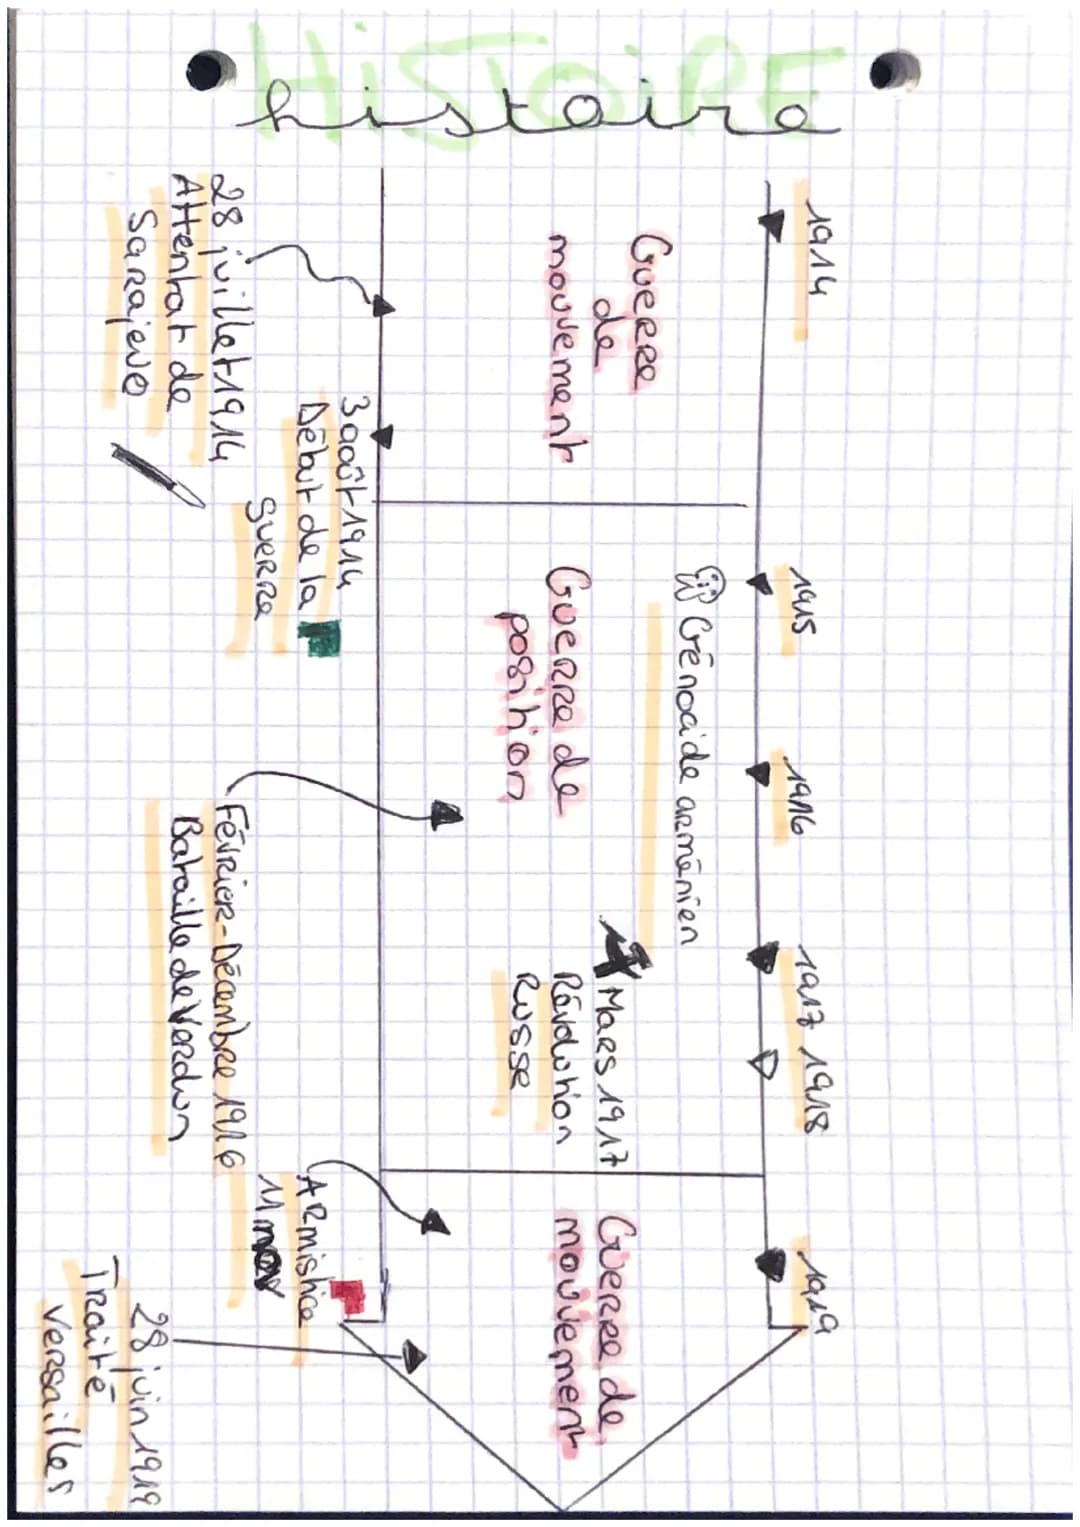 HiSTOiRE
histoire
1914
1915
1916
1917 1918
1919
Guerre
de
mouvement
Génocide arménien
Guerre de
position
Mars 1917
Révolution
Russe
Guerre de
mouvement
28 juillet 1914
Attentat de
Sarajevo
3 août 1914
Début de la
guerre
Février-Décembre 1916
Bataille de Verdun
Armistice
11 nov
28 juin 1919
Traité
Versailles